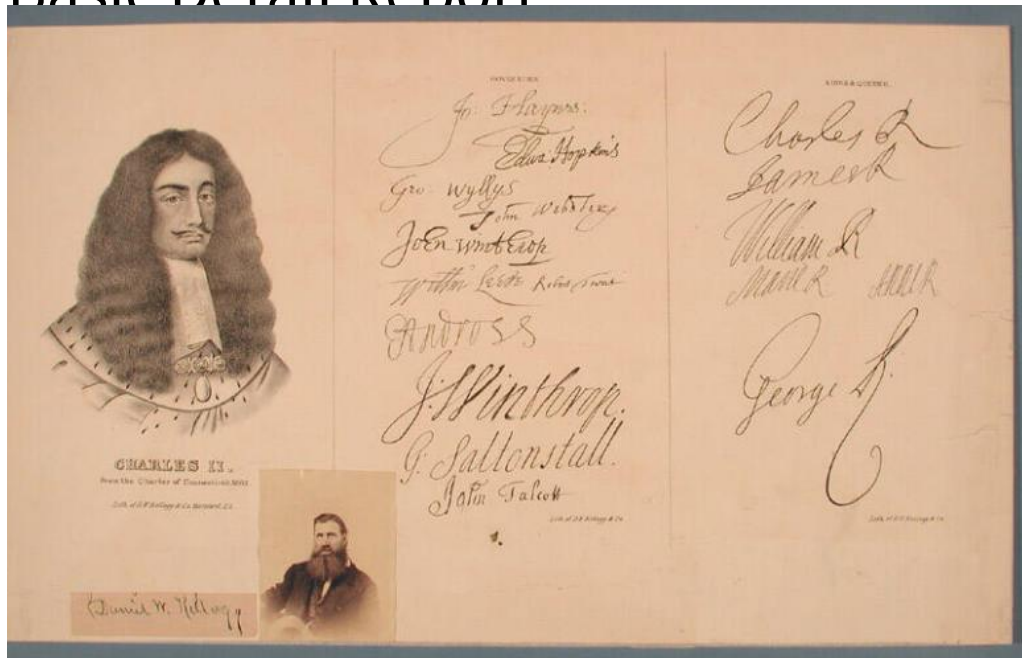 Basic Detail Report
CHARLES II.
From the Charter of Connecticut
Lith. of D.W. Kellogg & Co. Hartford, Ct.
Daniel W. Kellogg
GOVERNORS.
Jo: Haynes:
Edw: Hopkins
Geo: Wyllys
John Webster
John Winthrop
Willm Leete Robert Treat
Andross
J: Winthrop.
G: Saltonstall.
John Talcott
Lith. of D.W. Kellogg & Co.
KINGS & QUEENS.
Charles R
James R
William R
Marie R ANNE R
George R.
Lith. of D.W. Kellogg & Co.